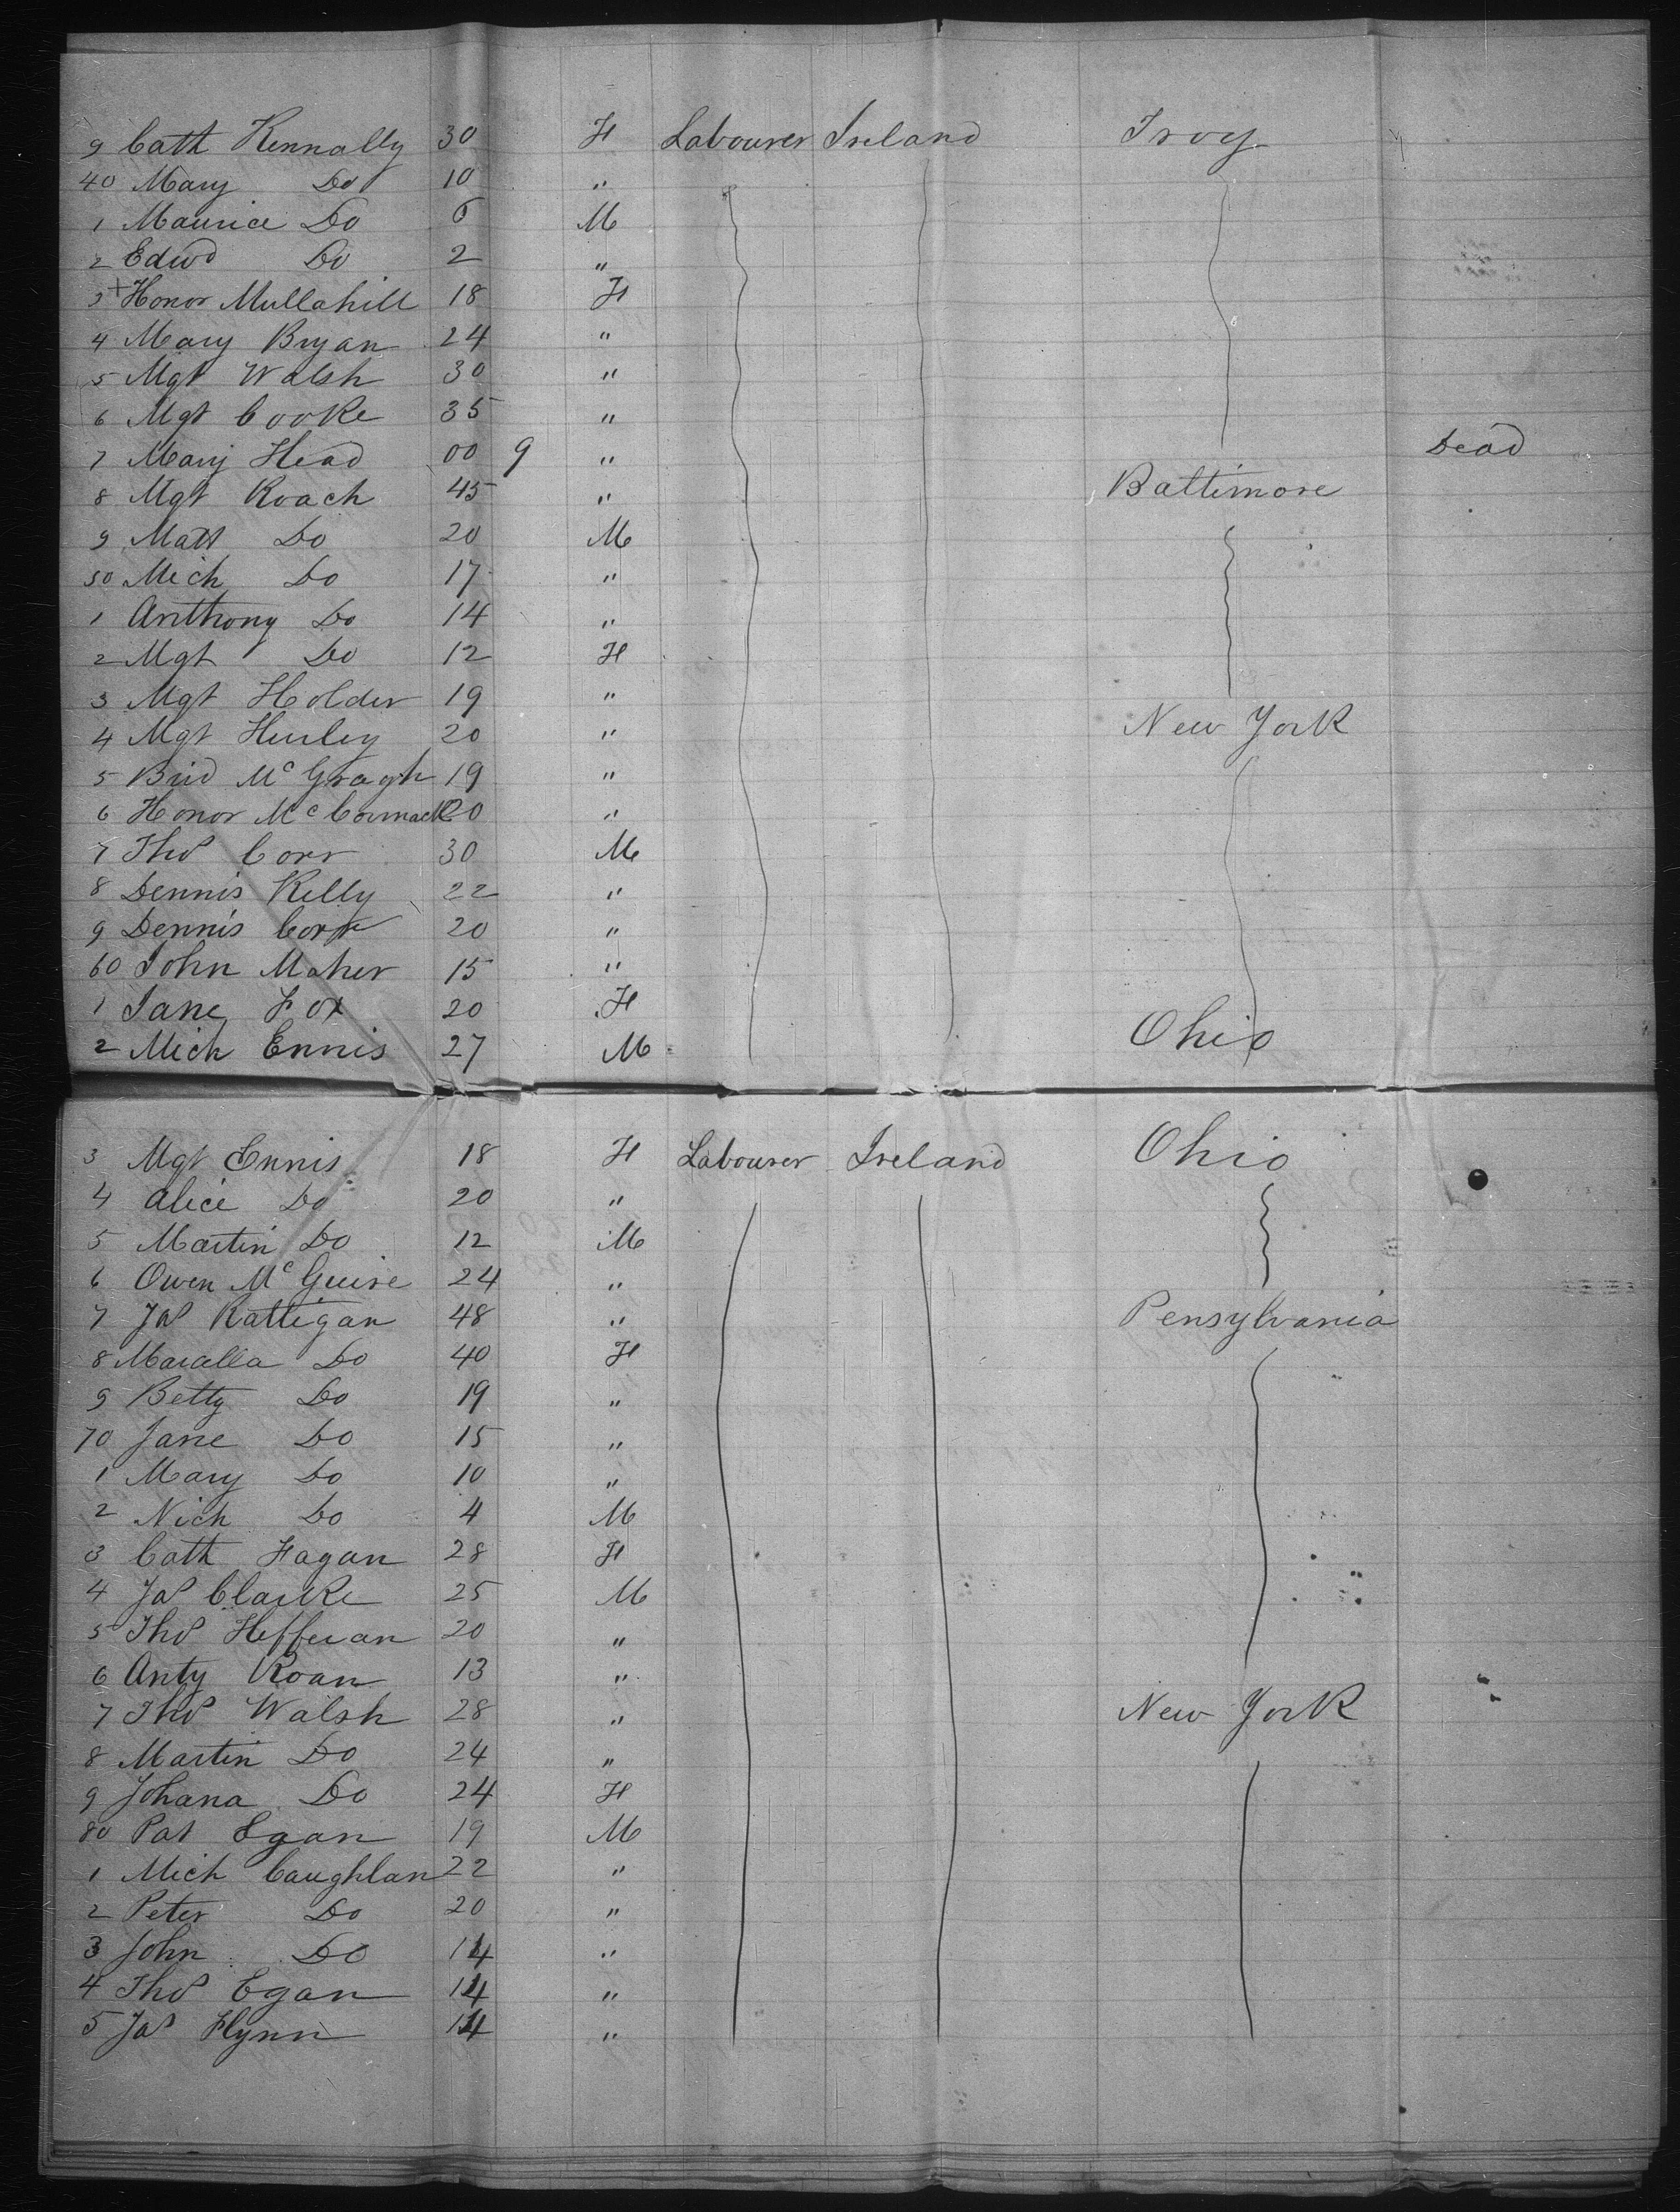 9 Cath Kennally 30 F Labourer Ireland Troy
40 Mary Do 10 "
1 Maurice Do 6 M
2 Edwd Do 2 "
3 + Honor Mullahill 18 F
4 Mary Bryan 24 "
5 Mgt Walsh 30 "
6 Mgt Cooke 35 "
7 Mary Head 00 9 " Dead
8 Mgt Roach 45 " Baltimore
9 Matt Do 20 M
50 Mich Do 17 "
1 Anthony Do 14 "
2 Mgt Do 12 F
3 Mgt Holder 19 "
4 Mgt Hurley 20 " New York
5 Brid McGragh 19 "
6 Honor McCormack 20 "
7 Thos Corr 30 M
8 Dennis Kelly 22 "
9 Dennis Corr 20 "
60 John Maher 15 "
1 Jane Fox 20 F
2 Mich Ennis 27 M Ohio
3 Mgt Ennis 18 F Labourer Ireland Ohio
4 Alice Do 20 "
5 Martin Do 12 M
6 Owen McGuire 24 "
7 Jas Rattigan 48 " Pensylvania
8 Maralla Do 40 F
9 Betty Do 19 "
70 Jane Do 15 "
1 Mary Do 10 "
2 Nich Do 4 M
3 Cath Fagan 28 F
4 Jas Clarke 25 M
5 Thos Heffernan 20 "
6 Anty Roan 13 "
7 Thos Walsh 28 " New York
8 Martin Do 24 "
9 Johana Do 24 F
80 Pat Egan 19 M
1 Mich Caughlan 22 "
2 Peter Do 20 "
3 John Do 14 "
4 Thos Egan 14 "
5 Jas Flynn 14 "